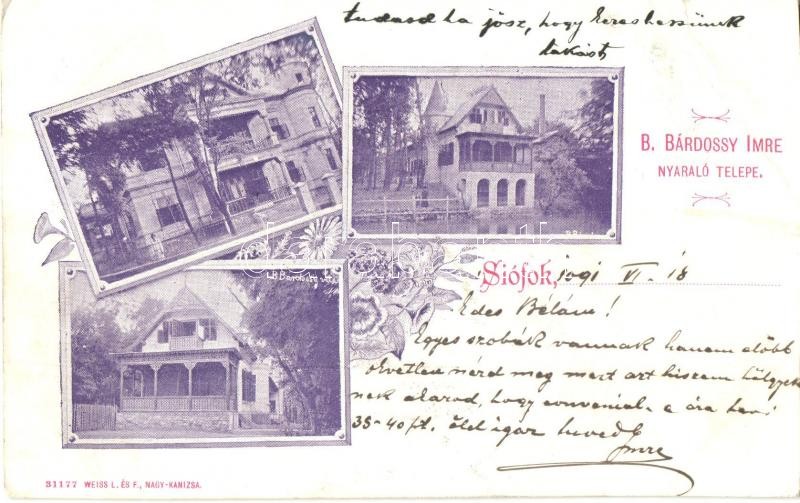 tudasd ha jösz, hogy kereshessünk
lakást
B. BÁRDOSSY IMRE
NYARALÓ TELEPE.
Siófok, 1901 VI. 18
Edes Bélám!
Egyes szobák vannak hanem előbb
okvetlen nézd meg mert azt hiszem hölgyek
nek akarod, hogy conveniál. a ára havi
35-40 ft. ölel igaz hived
Imre
31177 WEISS L. ÉS F., NAGY-KANIZSA.